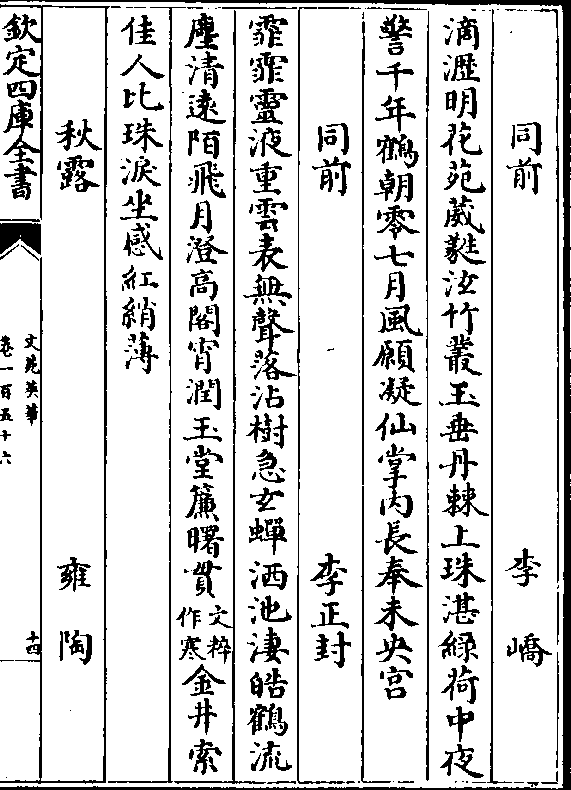 同前　李嶠
滴瀝明花苑葳蕤泫竹叢玉垂丹棘上珠湛綠荷中夜
警千年鶴朝零七月風願凝仙掌内長奉未央宫
同前　李正封
霏霏靈液重雲表無聲落沾樹急玄蟬洒池淒皓鶴流
塵清遠陌飛月澄高閣宵潤玉堂簾曙貫文粹作寒金井索
佳人比珠淚坐感紅綃薄
秋露　雍陶
欽定四庫全書
文苑英華
卷一百五十六
十四